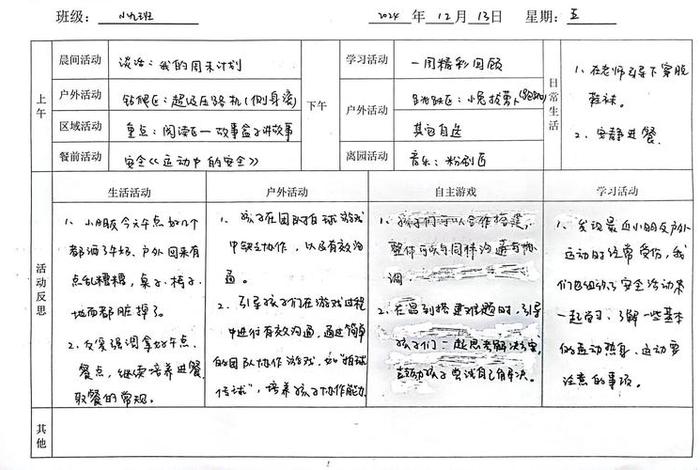 班级： 小九班 2024 年 12 月 13 日 星期： 五
上午
晨间活动 谈话：我的周末计划
户外活动 钻爬区：超级压路机(侧身滚)
区域活动 重点：阅读区—故事盒子讲故事
餐前活动 安全《运动中的安全》
下午
学习活动 一周精彩回顾
户外活动 小兔拔萝卜
其它自选
离园活动 音乐：粉刷匠
日常生活
1、在老师引导下穿脱
鞋袜。
2、安静进餐
活动反思
生活活动
1、小朋友今天午点好几个
都洒了牛奶、户外回来有
点乱糟糟，桌子、椅子、
地面都脏掉了。
2、反复强调拿好午点、
餐点，继续培养进餐、
取餐的常规。
户外活动
1、孩子在团队拍球游戏
中缺乏协作，以及有效沟
通。
2、引导孩子们在游戏过程
中进行有效沟通，通过简单
的团队协作游戏，如“拍球
传球”，培养孩子协作能力
自主游戏
1、孩子们可以合作搭建，
整体可以与同伴沟通与协
调。
2、在遇到搭建难题时，引导
孩子们一起思考解决方案，
鼓励孩子尝试自己解决。
学习活动
1、发现最近小朋友户外
运动时经常受伤，我
们也组织了安全活动来
一起学习、了解一些基本
的运动热身、运动要
注意的事项。
其他
1